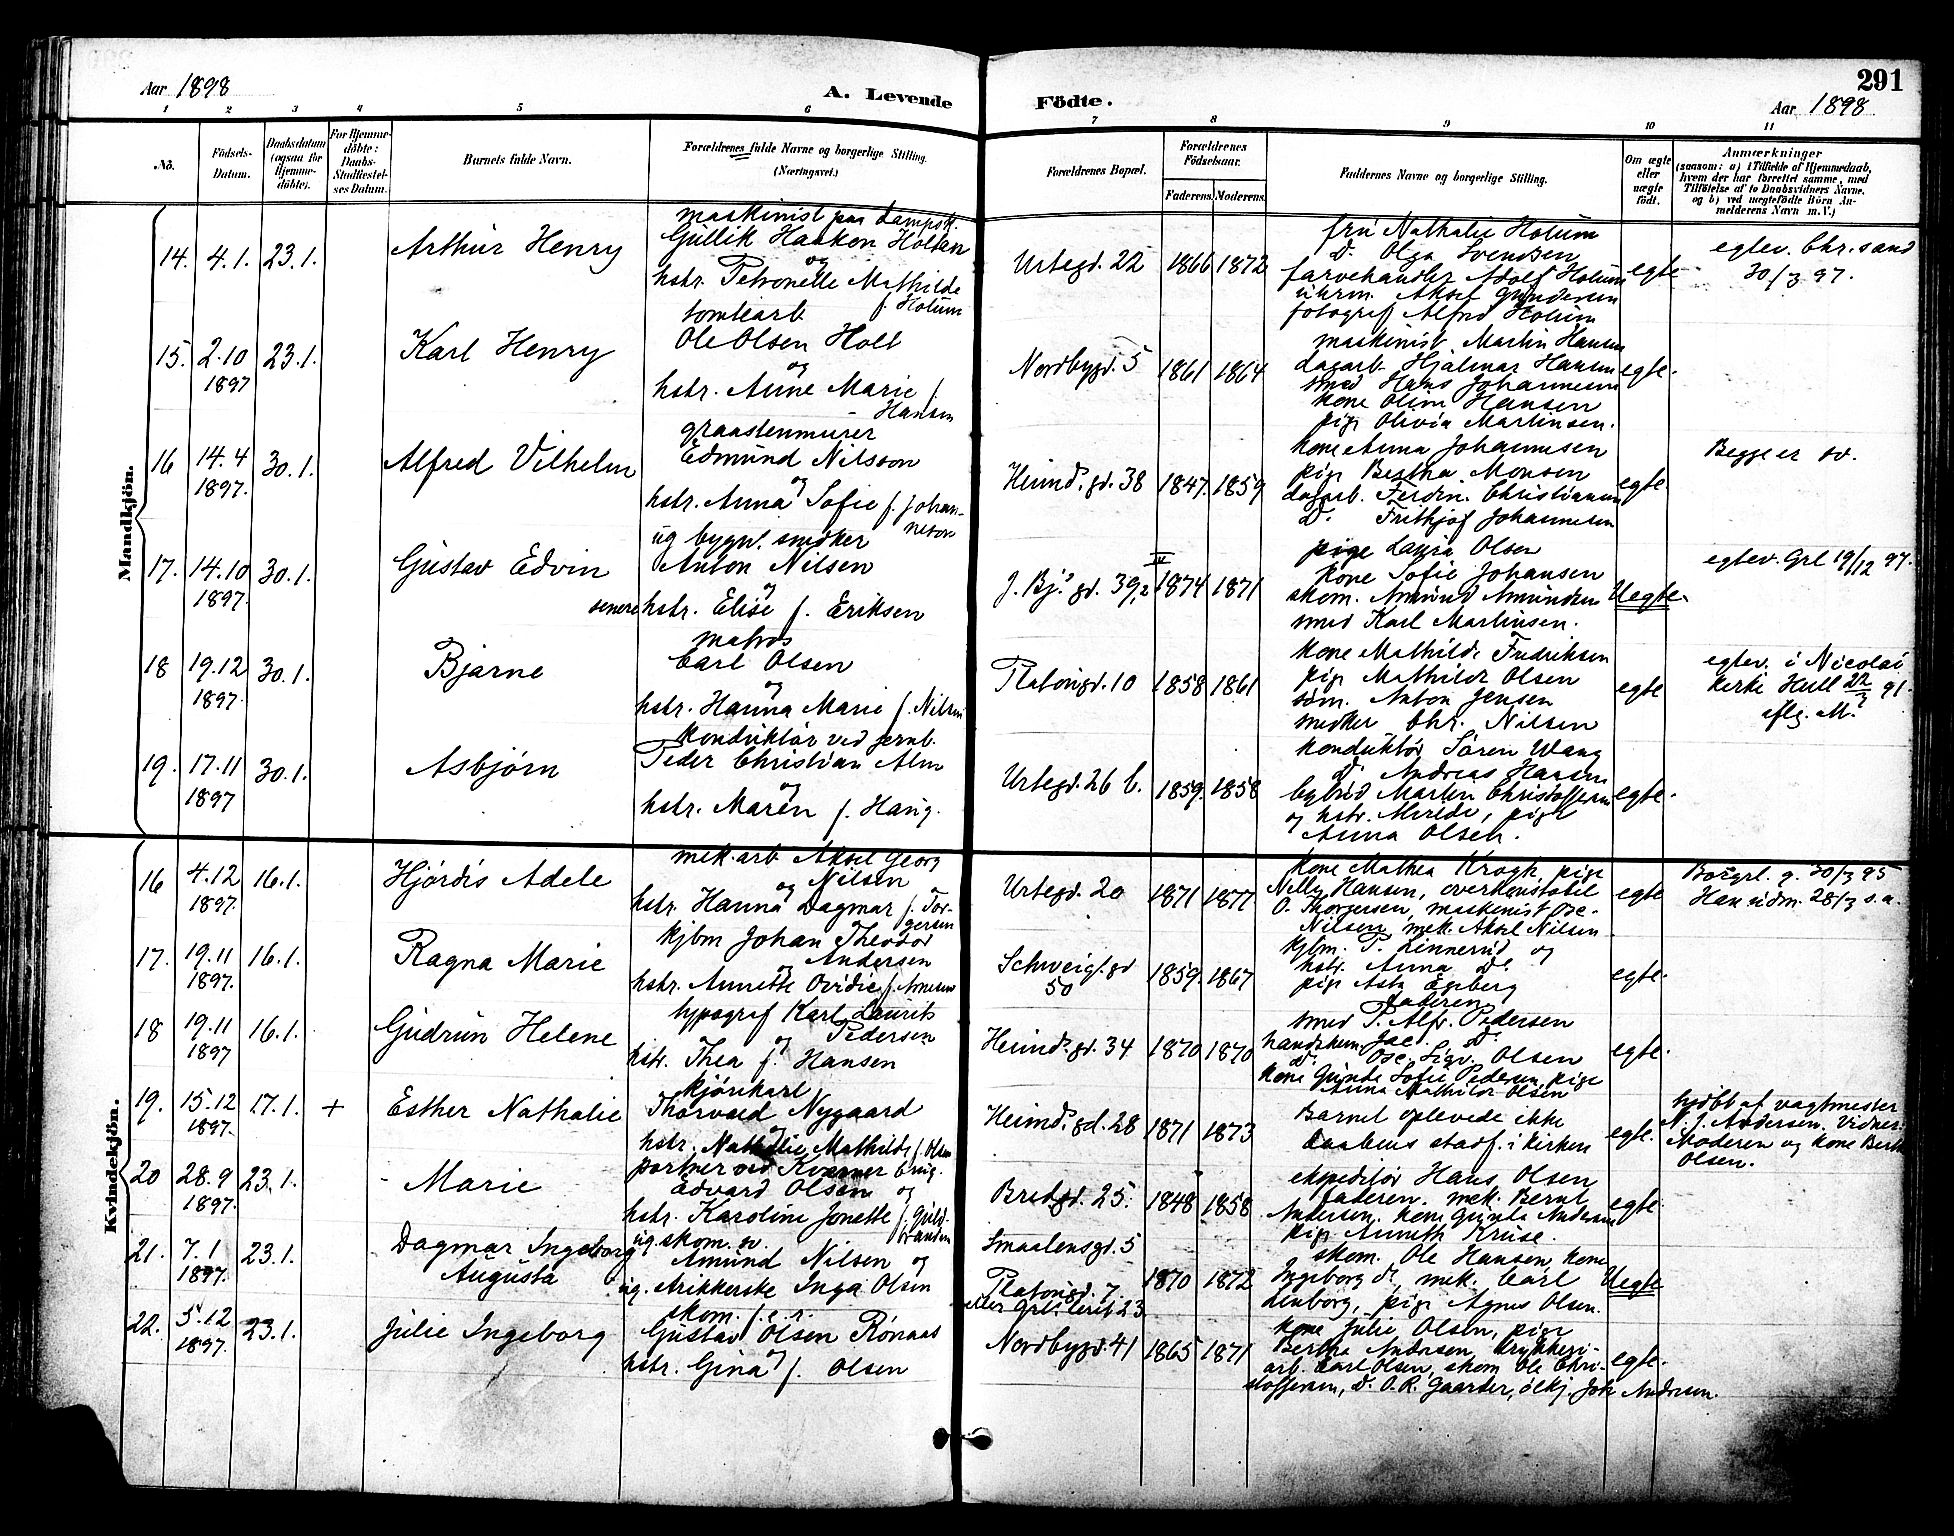 291
Aar 1898
A. Levende Födte.
Aar 1898
1 2 3 4 5 6 7 8 9 10 11
Nö.
Födsels-
Datum.
Daabsdatum
(ogsaa for
Hjemme-
döbte).
For Hjemme-
döbte:
Daabs-
Stadfæstel-
ses Datum.
Barnets fulde Navn.
Forældrenes fulde Navne og borgerlige Stilling.
(Næringsvei.)
Forældrenes Bopæl.
Forældrenes
Födselsaar.
Faderens. Moderens.
Faddernes Navne og borgerlige Stilling.
Om ægte
eller
uægte
födt.
Anmærkninger
(saasom: a) i Tilfælde af Hjemmedaab,
hvem der har forrettet samme, med
Tilföielse af to Daabsvidners Navne,
og b) ved uægtefödte Börn An-
melderens Navn m. V.)
Mandkjön.
14. 4.1. 23.1.
Arthur Henry
maskinist paa Dampsk.
Gullik Haaken Holtan
og
hstr. Petronelle Mathilde
f. Holum
Urtegd. 22
1866 1872
fru Nathalie Holum
Do Olga Svendsen
farvehandler Adolf Holum
uhrm. Aksel Gundersen
fotograf Alfred Holum
egte
egtev. Chr.sand
30/3 97.
15. 2.10
1897
23.1.
Karl Henry
tomtearb
Ole Olsen Holt
og
hstr. Anne Marie f.
Hansen
Nordbygd. 5
1861 1864
maskinist Martin Hansen
dagarb. Hjalmar Hansen
smed Hans Johannesen
kone Oline Hansen
pige Olivia Martinsen.
egte.
16 14.4
1897.
30.1.
Alfred Vilhelm
graastenmurer
Edmund Nilsson
og
hstr. Anna Sofie f. Johan-
neson
Heimd. gd. 38
1847. 1859
kone Anna Johannesen
pige Bertha Monsen
dagarb. Ferdin. Christiansen
Do Frithjof Johannesen
egte.
Begge er sv.
17. 14.10
1897.
30.1.
Gustav Edvin
ug bygn. snedker
Anton Nilsen
og
senere hstr. Elise f. Eriksen
J. Bj.s gd. 39,2 II
1874 1871
pige Laura Olsen
kone Sofie Johansen
skom. Amund Amundsen
smed Karl Martinsen.
Uegte.
egtev. Grl 19/12 97.
18 19.12
1897.
30.1.
Bjarne
matros
Carl Olsen
og
hstr. Hanna Marie f. Nilsen
Platougd. 10
1858 1861
kone Mathilde Fredriksen
pige Mathilde Olsen
söm. Anton Jensen
snedker Chr. Nilsen
egte
egtev. i Nicolai
kirke Hull 22/3 91.
19. 17.11
1897
30.1.
Asbjørn
konduktør ved jernb.
Peder Christian Alm
og
hstr. Maren f. Haug.
Urtegd. 26 b.
1859. 1858
konduktør Søren Wang
Do Andreas Hansen
bybud Martin Christoffersen
og hstr. Merede, pige
Anna Olsen.
egte.
Kvindekjön.
16 4.12
1897.
16.1.
Hjördis Adele
mek. arb Aksel Georg
og Nilsen
hstr. Hanna Dagmar f. Tor-
gersen
Urtegd. 20
1871 1877
kone Mathea Krogh, pige
Nelly Hansen, overkonstabel
O. Thorgersen, maskinist Osc.
Nilsen, mek. Aksel Nilsen.
egte
Borgrl. g. 30/3 95
Han udm. 28/3 s.a.
17. 19.11
1897.
16.1.
Ragna Marie
kjbm Johan Theodor
og Andersen
hstr. Annette Ovidie f. Arnesen
Schweig.gd
50
1859. 1867
kjbm. P. Linnerud og
hstr. Anna Do
pige Asta Egeberg
Faderen
egte.
18 19.11
1897
16.1.
Gudrun Helene
typograf Karl Laurits
og Pedersen
hstr. Thea f. Hansen
Heimd. gd. 34
1870 1870
smed P. Alfr. Pedersen
handskem. Jac. Do
Do Osc. Sigv. Olsen
kone Gunda Sofie Pedersen, pige
Anna Mathilde Olsen
egte.
19. 15.12
1897.
17.1. +
Esther Nathalie
kjörekarl
Thorvald Nygaard
og
hstr. Nathalie Mathilde f. Olsen
Heimd. gd. 28
1871 1873
Barnet oplevede ikke
daabens stadf. i kirken
egte.
hjdbt af vagtmester
N. J. Andersen. Vidner:
Moderen og kone Berthe
Olsen.
20 28.9
1897.
23.1.
Marie
portner ved Kværner brug.
Edvard Olsen og
hstr. Karoline Jonette f. Guld-
brandsen
Bredgd. 25.
1848 1858
ekspeditør Hans Olsen
Faderen. mek. Bernt
Andersen. kone Gunda Andersen
pige Anneth Kruse.
egte.
21. 7.1
1897.
23.1.
Dagmar Ingeborg
Augusta
ug. skom. sv.
Amund Nilsen og
ug. strikkerske Inga Olsen
Smaalensgd. 5
Platougd. 7.
1870 1872
skom. Ole Hansen, kone
Ingeborg Do, mek. Carl
Lenborg, pige Agnes Olsen.
Uegte
22. 5.12
1897.
23.1.
Julie Ingeborg
skom.
Gustav Olsen Rønaas
og
hstr. Gina f. Olsen
Nordbygd. 41
1865 1871
kone Julie Olsen, pige
Bertha Andersen, trykkeri-
arb. Carl Olsen, skom Ole Chri-
stoffersen, Do O. R. Gaarder, ölkj. Joh Andresen.
egte.